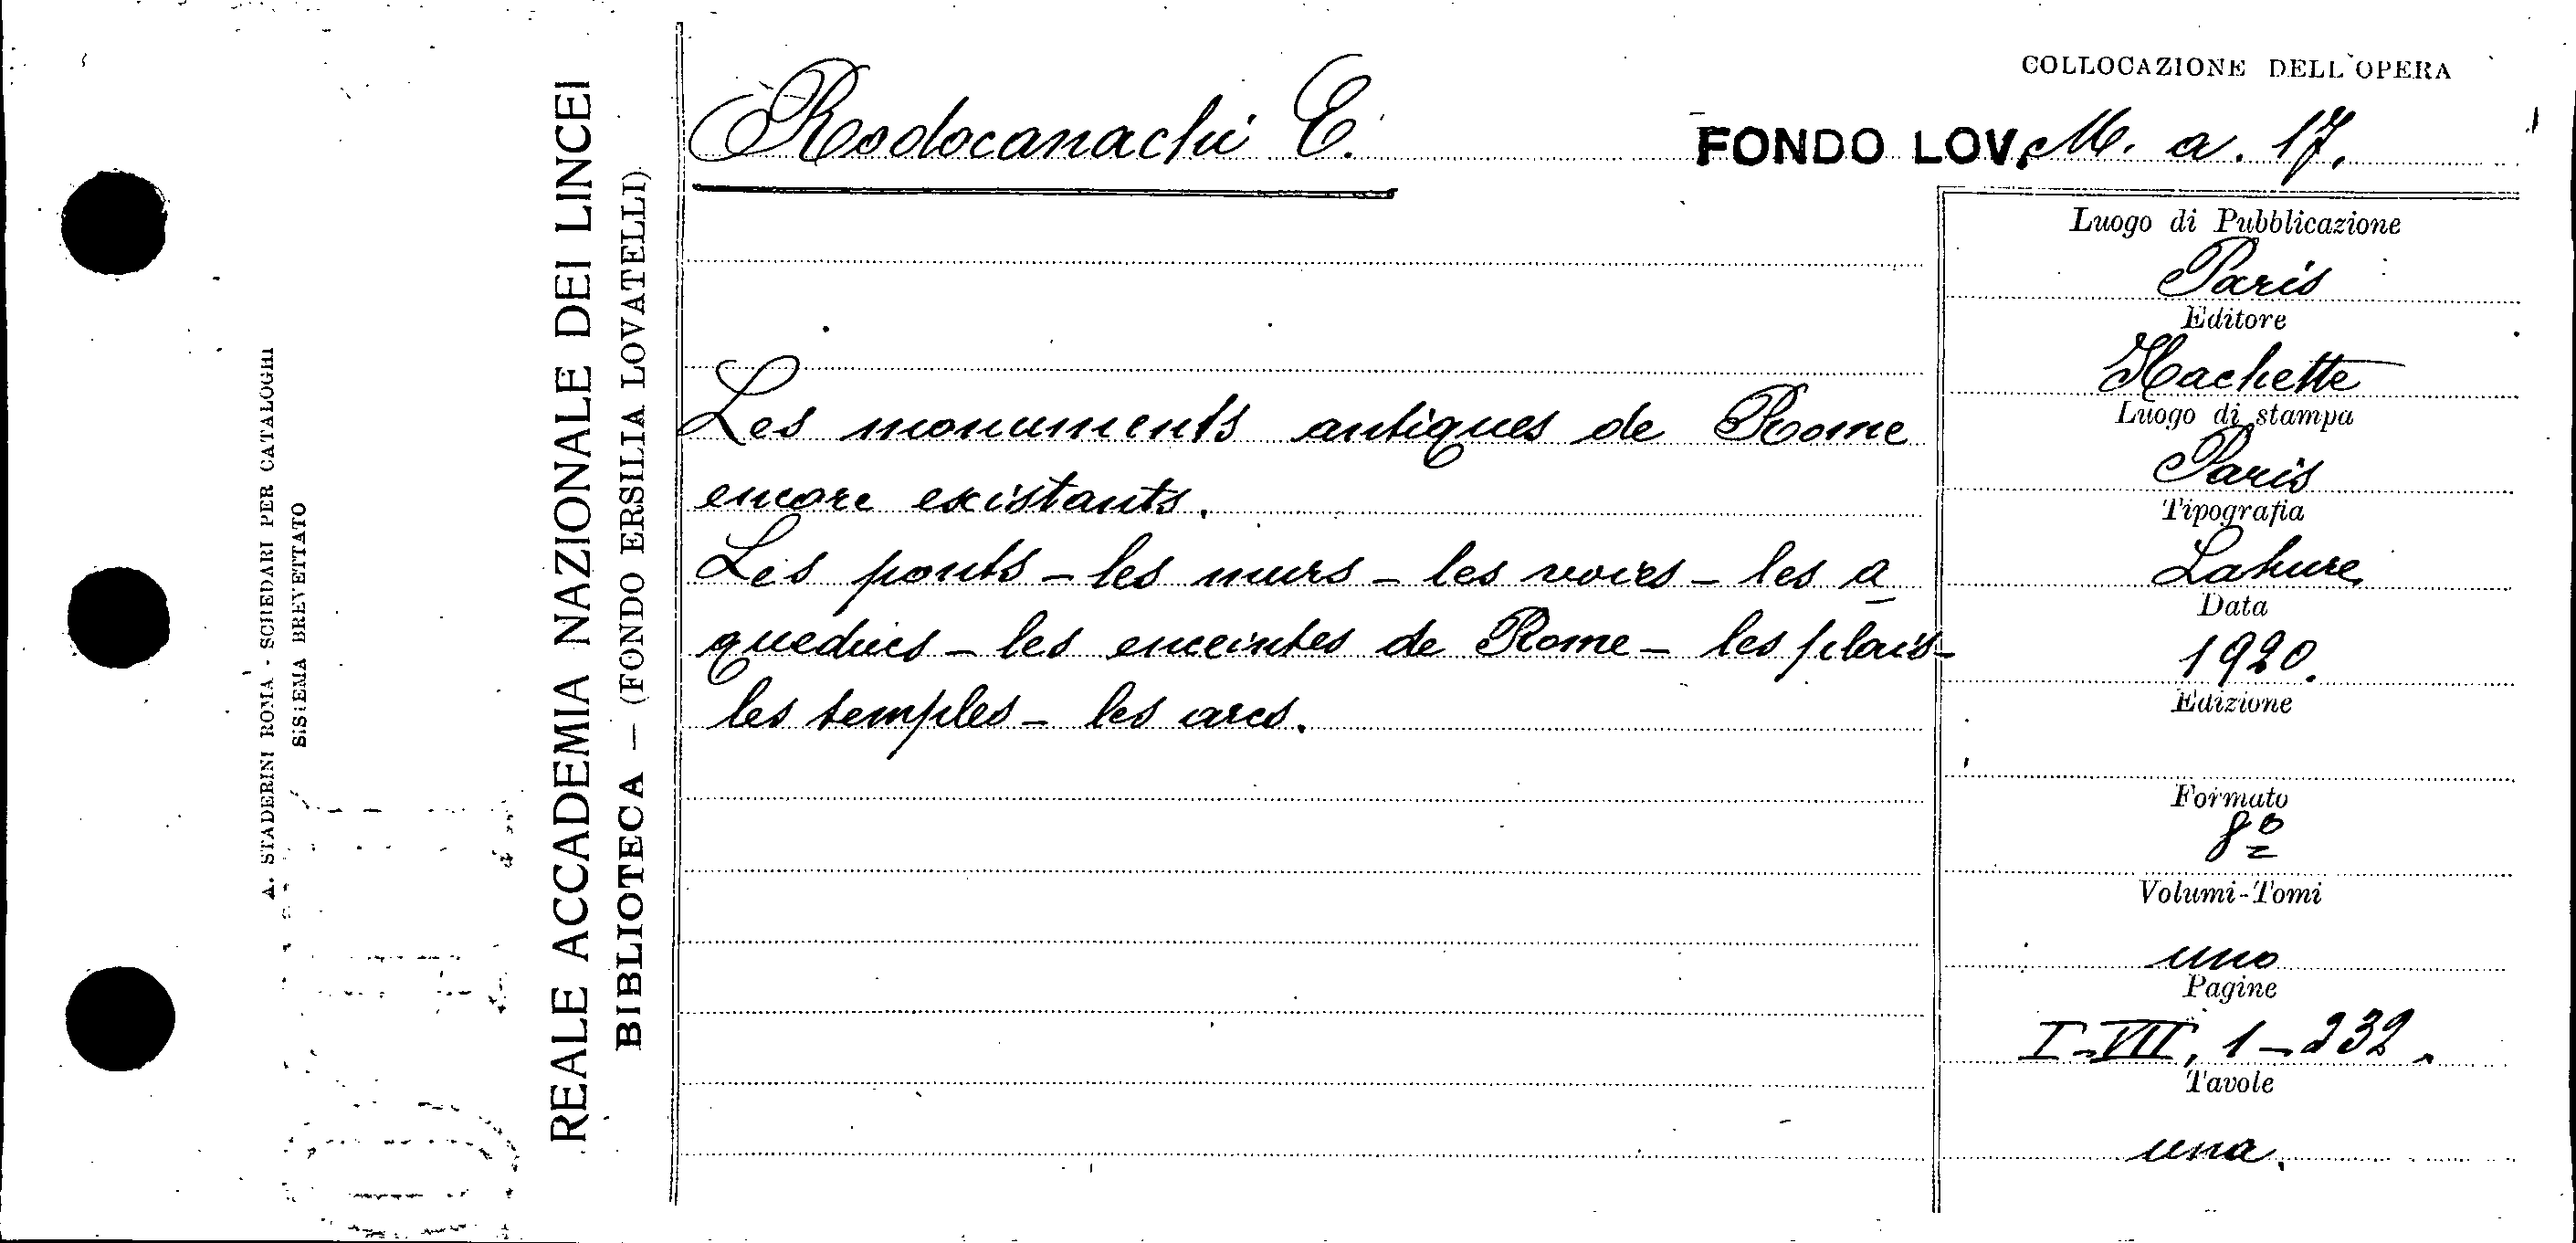 A. STADERINI ROMA - SCHEDARI PER CATALOGHI
SISTEMA BREVETTATO
REALE ACCADEMIA NAZIONALE DEI LINCEI
BIBLIOTECA — (FONDO ERSILIA LOVATELLI)
COLLOCAZIONE DELL'OPERA
Rodocanachi E.
FONDO LOV. M. a. 17.
Les monuments antiques de Rome
encore existants.
Les ponts - les murs - les voies - les a
queducs - les enceintes de Rome - les plais-
les temples - les arcs.
Luogo di Pubblicazione
Paris
Editore
Hachette
Luogo di stampa
Paris
Tipografia
Lahure
Data
1920.
Edizione
Formato
8º
Volumi-Tomi
uno
Pagine
I-VII, 1-232.
Tavole
una.